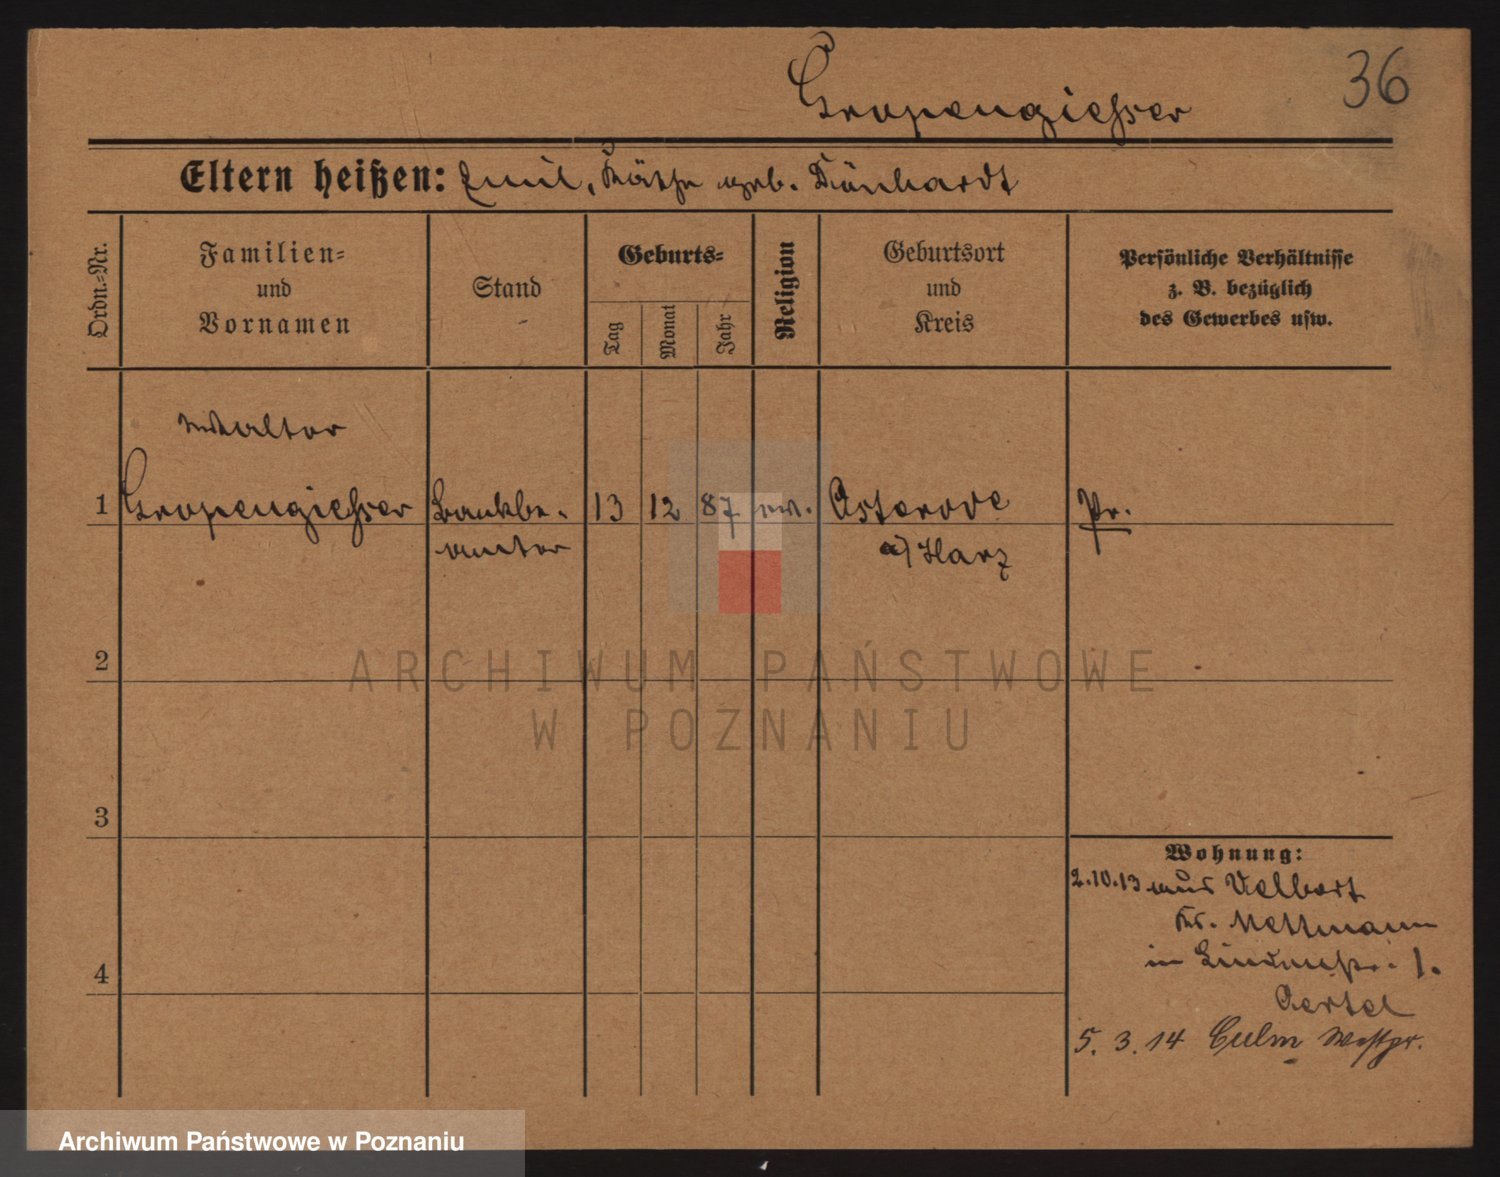 36
Gropengiesser
Eltern heißen: Emil, Käthe geb. Dünhardt
Ordn.-Nr.
Familien-
und
Vornamen
Stand
Geburts-
Tag
Monat
Jahr
Religion
Geburtsort
und
Kreis
Persönliche Verhältnisse
z. B. bezüglich
des Gewerbes usw.
Walter
1 Gropengiesser Bankbe- 13 12 87 ev. Osterode Pr.
amter a/Harz
2
3
4
Wohnung:
2.10.13 aus Velbert
Kr. Mettmann
in 1.
Oertel
5. 3. 14 Culm Westpr.
ARCHIWUM PAŃSTWOWE
W POZNANIU
Archiwum Państwowe w Poznaniu